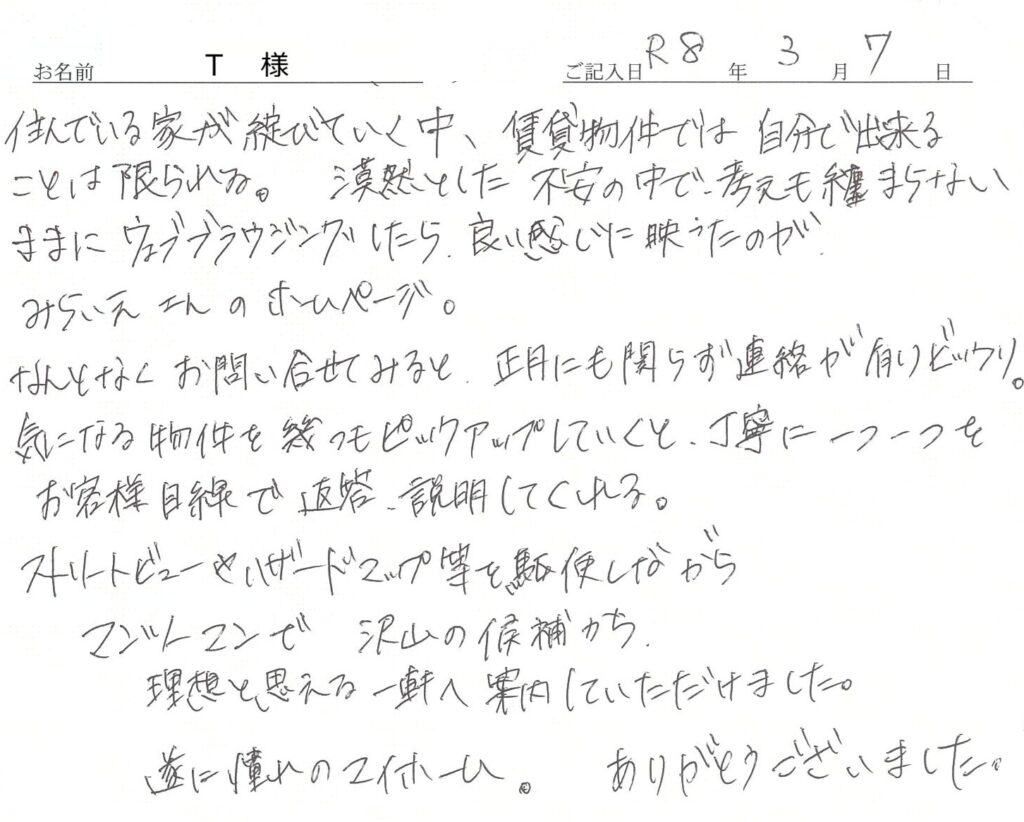 お名前 T 様 ご記入日 R8 年 3 月 7 日
住んでいる家が綻びていく中、賃貸物件では自分で出来る
ことは限られる。 漠然とした不安の中で、考えも纏まらない
ままにウェブブラウジングしたら、良い感じに映ったのが、
みらいえさんのホームページ。
なんとなくお問い合せてみると、正月にも関らず連絡が有りビックリ。
気になる物件を幾つもピックアップしていくと、丁寧に一つ一つを
お客様目線で返答、説明してくれる。
ストリートビューやハザードマップ等を駆使しながら
マンツーマンで 沢山の候補から、
理想と思える一軒へ案内していただけました。
遂に憧れのマイホーム。 ありがとうございました。